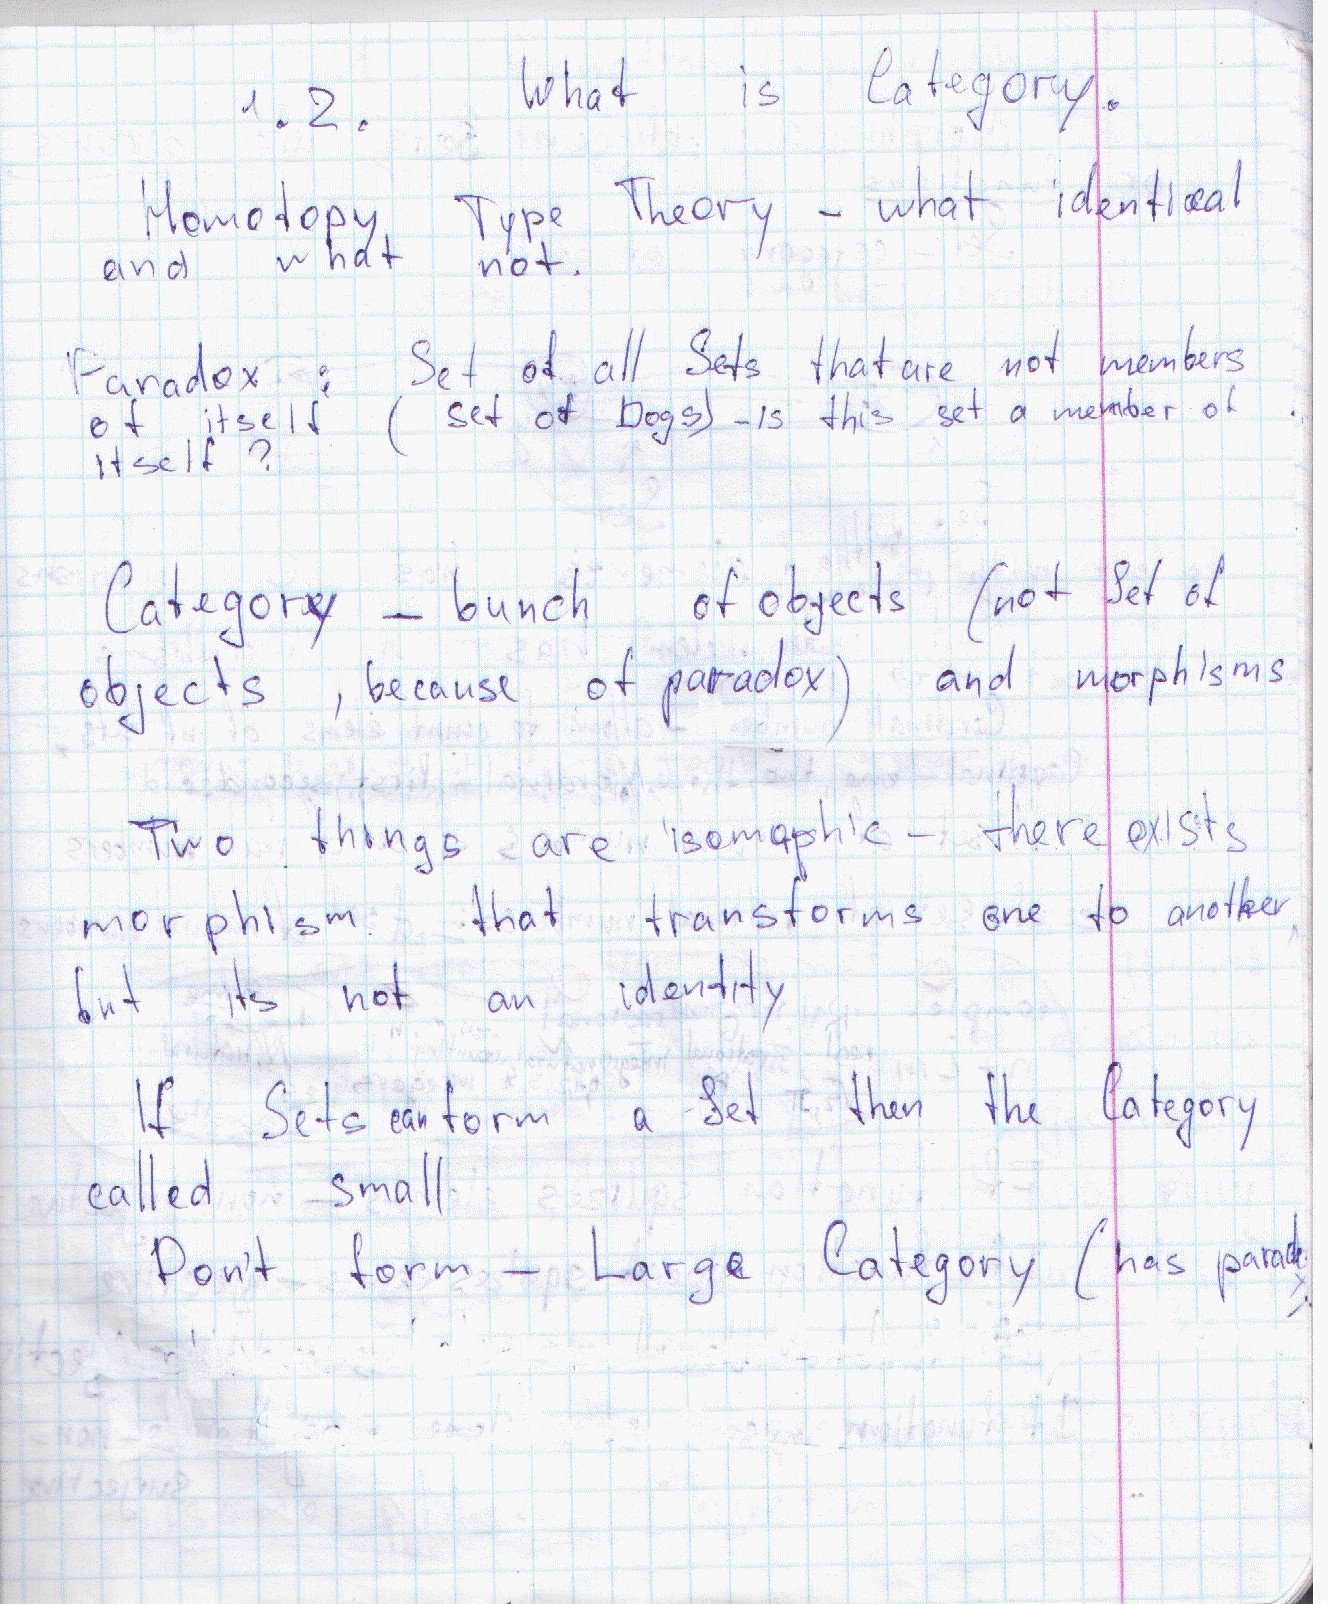 1.2. What is Category.
Homotopy Type Theory - what identical
and what not.
Paradox : Set of all Sets that are not members
of itself ( set of Dogs) - is this set a member of
itself ?
Category - bunch of objects (not Set of
objects , because of paradox) and morphisms
Two things are isomophic - there exists
morphism that transforms one to another,
but its not an identity
If Sets can form a Set then the Category
called small
Don't form - Large Category (has parado